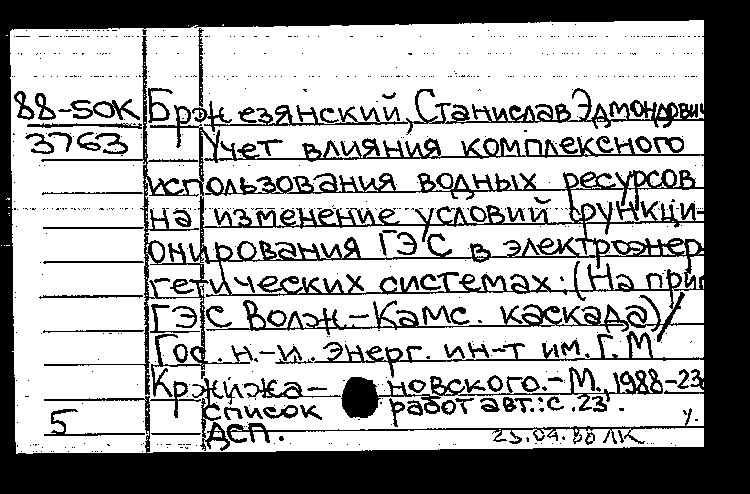 88-50К Брэжезянский, Станислав Эдмондович
3763 Учет влияния комплексного
использования водных ресурсов
на изменение условий функци-
онирования ГЭС в электроэнер
гетических системах: (На при
ГЭС Волж.-Камс. каскада)/
Гос. н.-и. энерг. ин-т им. Г.М
Кржижа- новского.-М., 1988-23
список работ авт.: с. 23.
5 ДСП. 25.04.88 ЛК У.